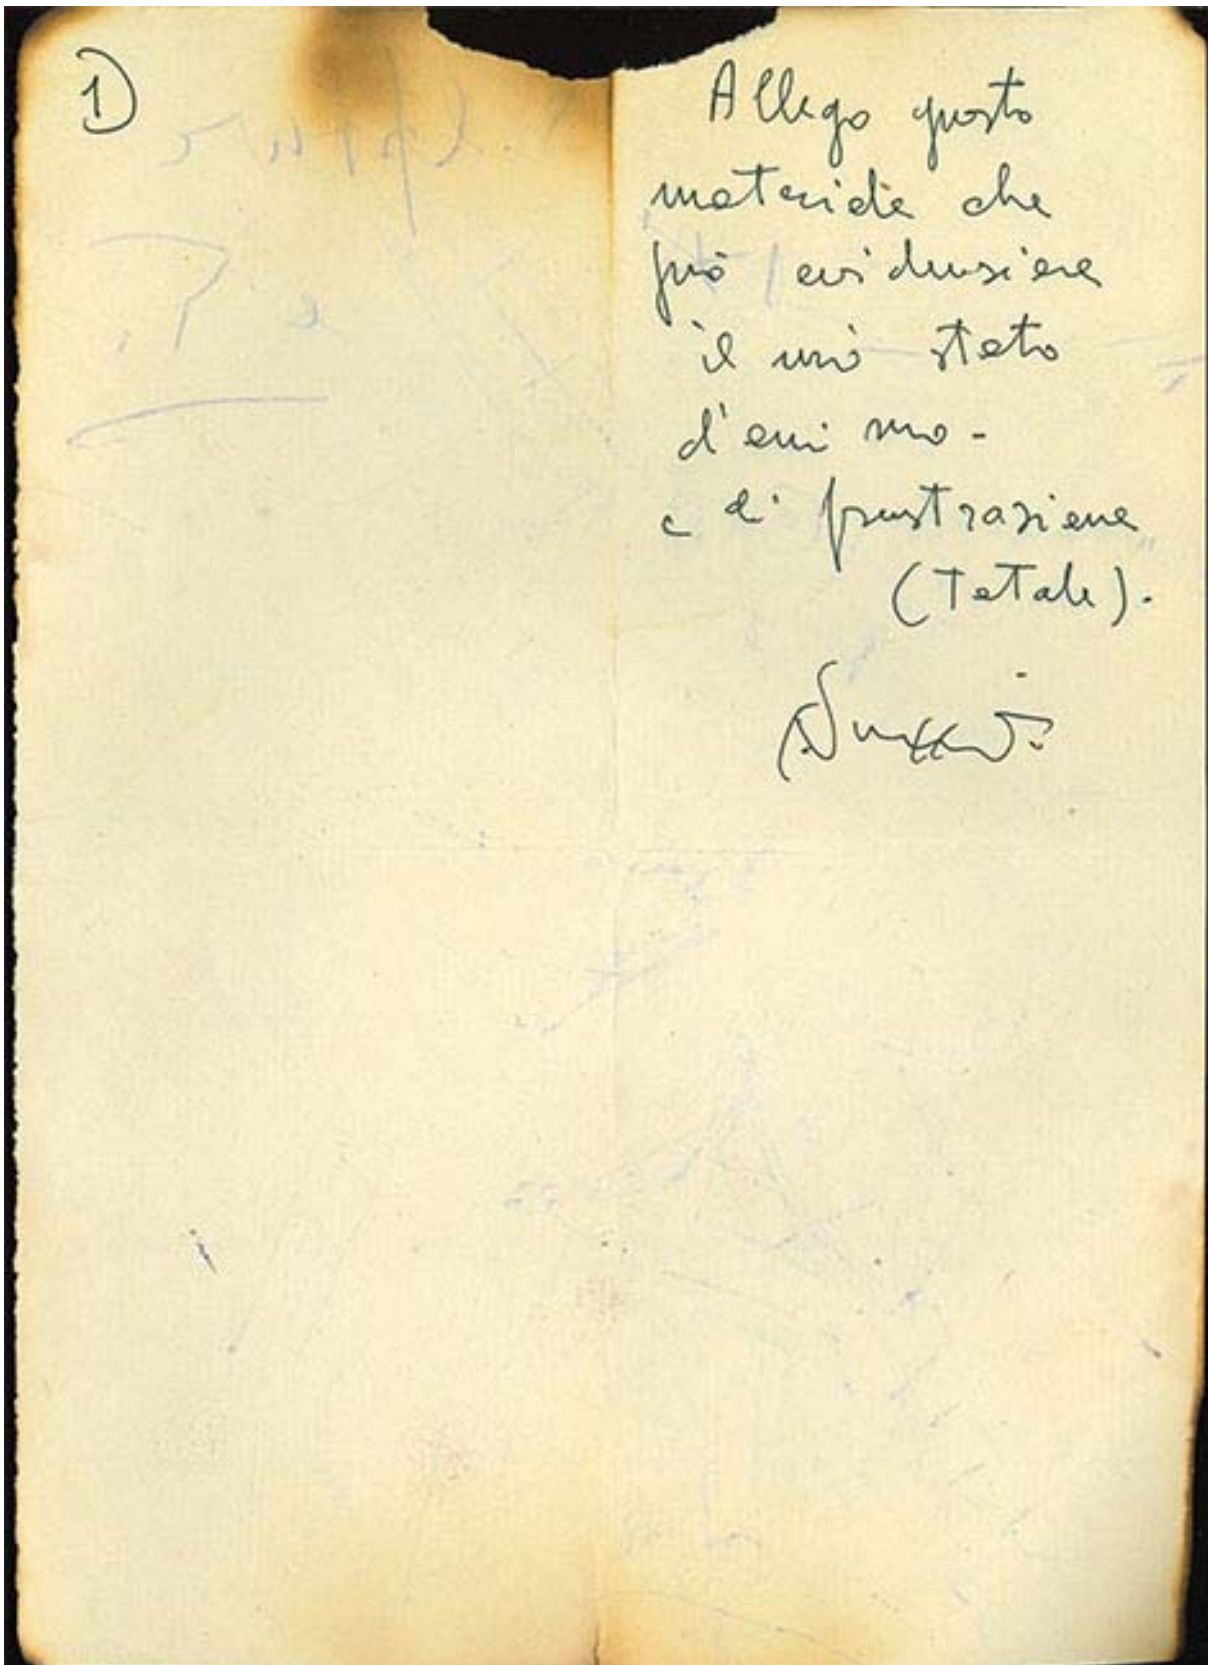 1)
Allego questo
materiale che
può evidenziare
il mio stato
d'animo -
e di frustrazione
(Totale).